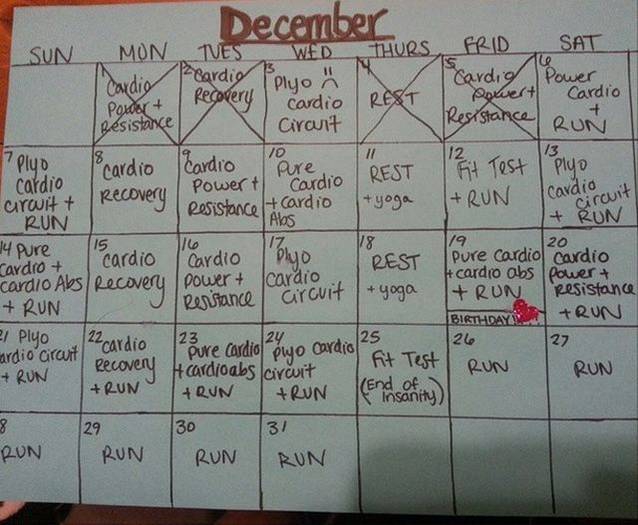 December
SUN MON TUES WED THURS FRID SAT
1
Cardio
Power +
Resistance
2 Cardio
Recovery
3
Plyo
Cardio
Circuit
4
REST
5
Cardio
Power +
Resistance
6
Power
Cardio
+
RUN
7 Plyo
Cardio
Circuit +
RUN
8
Cardio
Recovery
9
Cardio
Power +
Resistance
10
Pure
Cardio
+ Cardio
Abs
11
REST
+ yoga
12
Fit Test
+ RUN
13
Plyo
Cardio
Circuit
+ RUN
14 Pure
Cardio +
Cardio Abs
+ RUN
15
Cardio
Recovery
16
Cardio
Power +
Resistance
17
Plyo
Cardio
Circuit
18
REST
+ yoga
19
Pure Cardio
+ cardio abs
+ RUN
BIRTHDAY!
20
Cardio
Power +
Resistance
+ RUN
21 Plyo
ardio Circuit
+ RUN
22 Cardio
Recovery
+ RUN
23
Pure Cardio
+ cardio abs
+ RUN
24
Plyo Cardio
Circuit
+ RUN
25
Fit Test
(End of
Insanity)
26
RUN
27
RUN
8
RUN
29
RUN
30
RUN
31
RUN